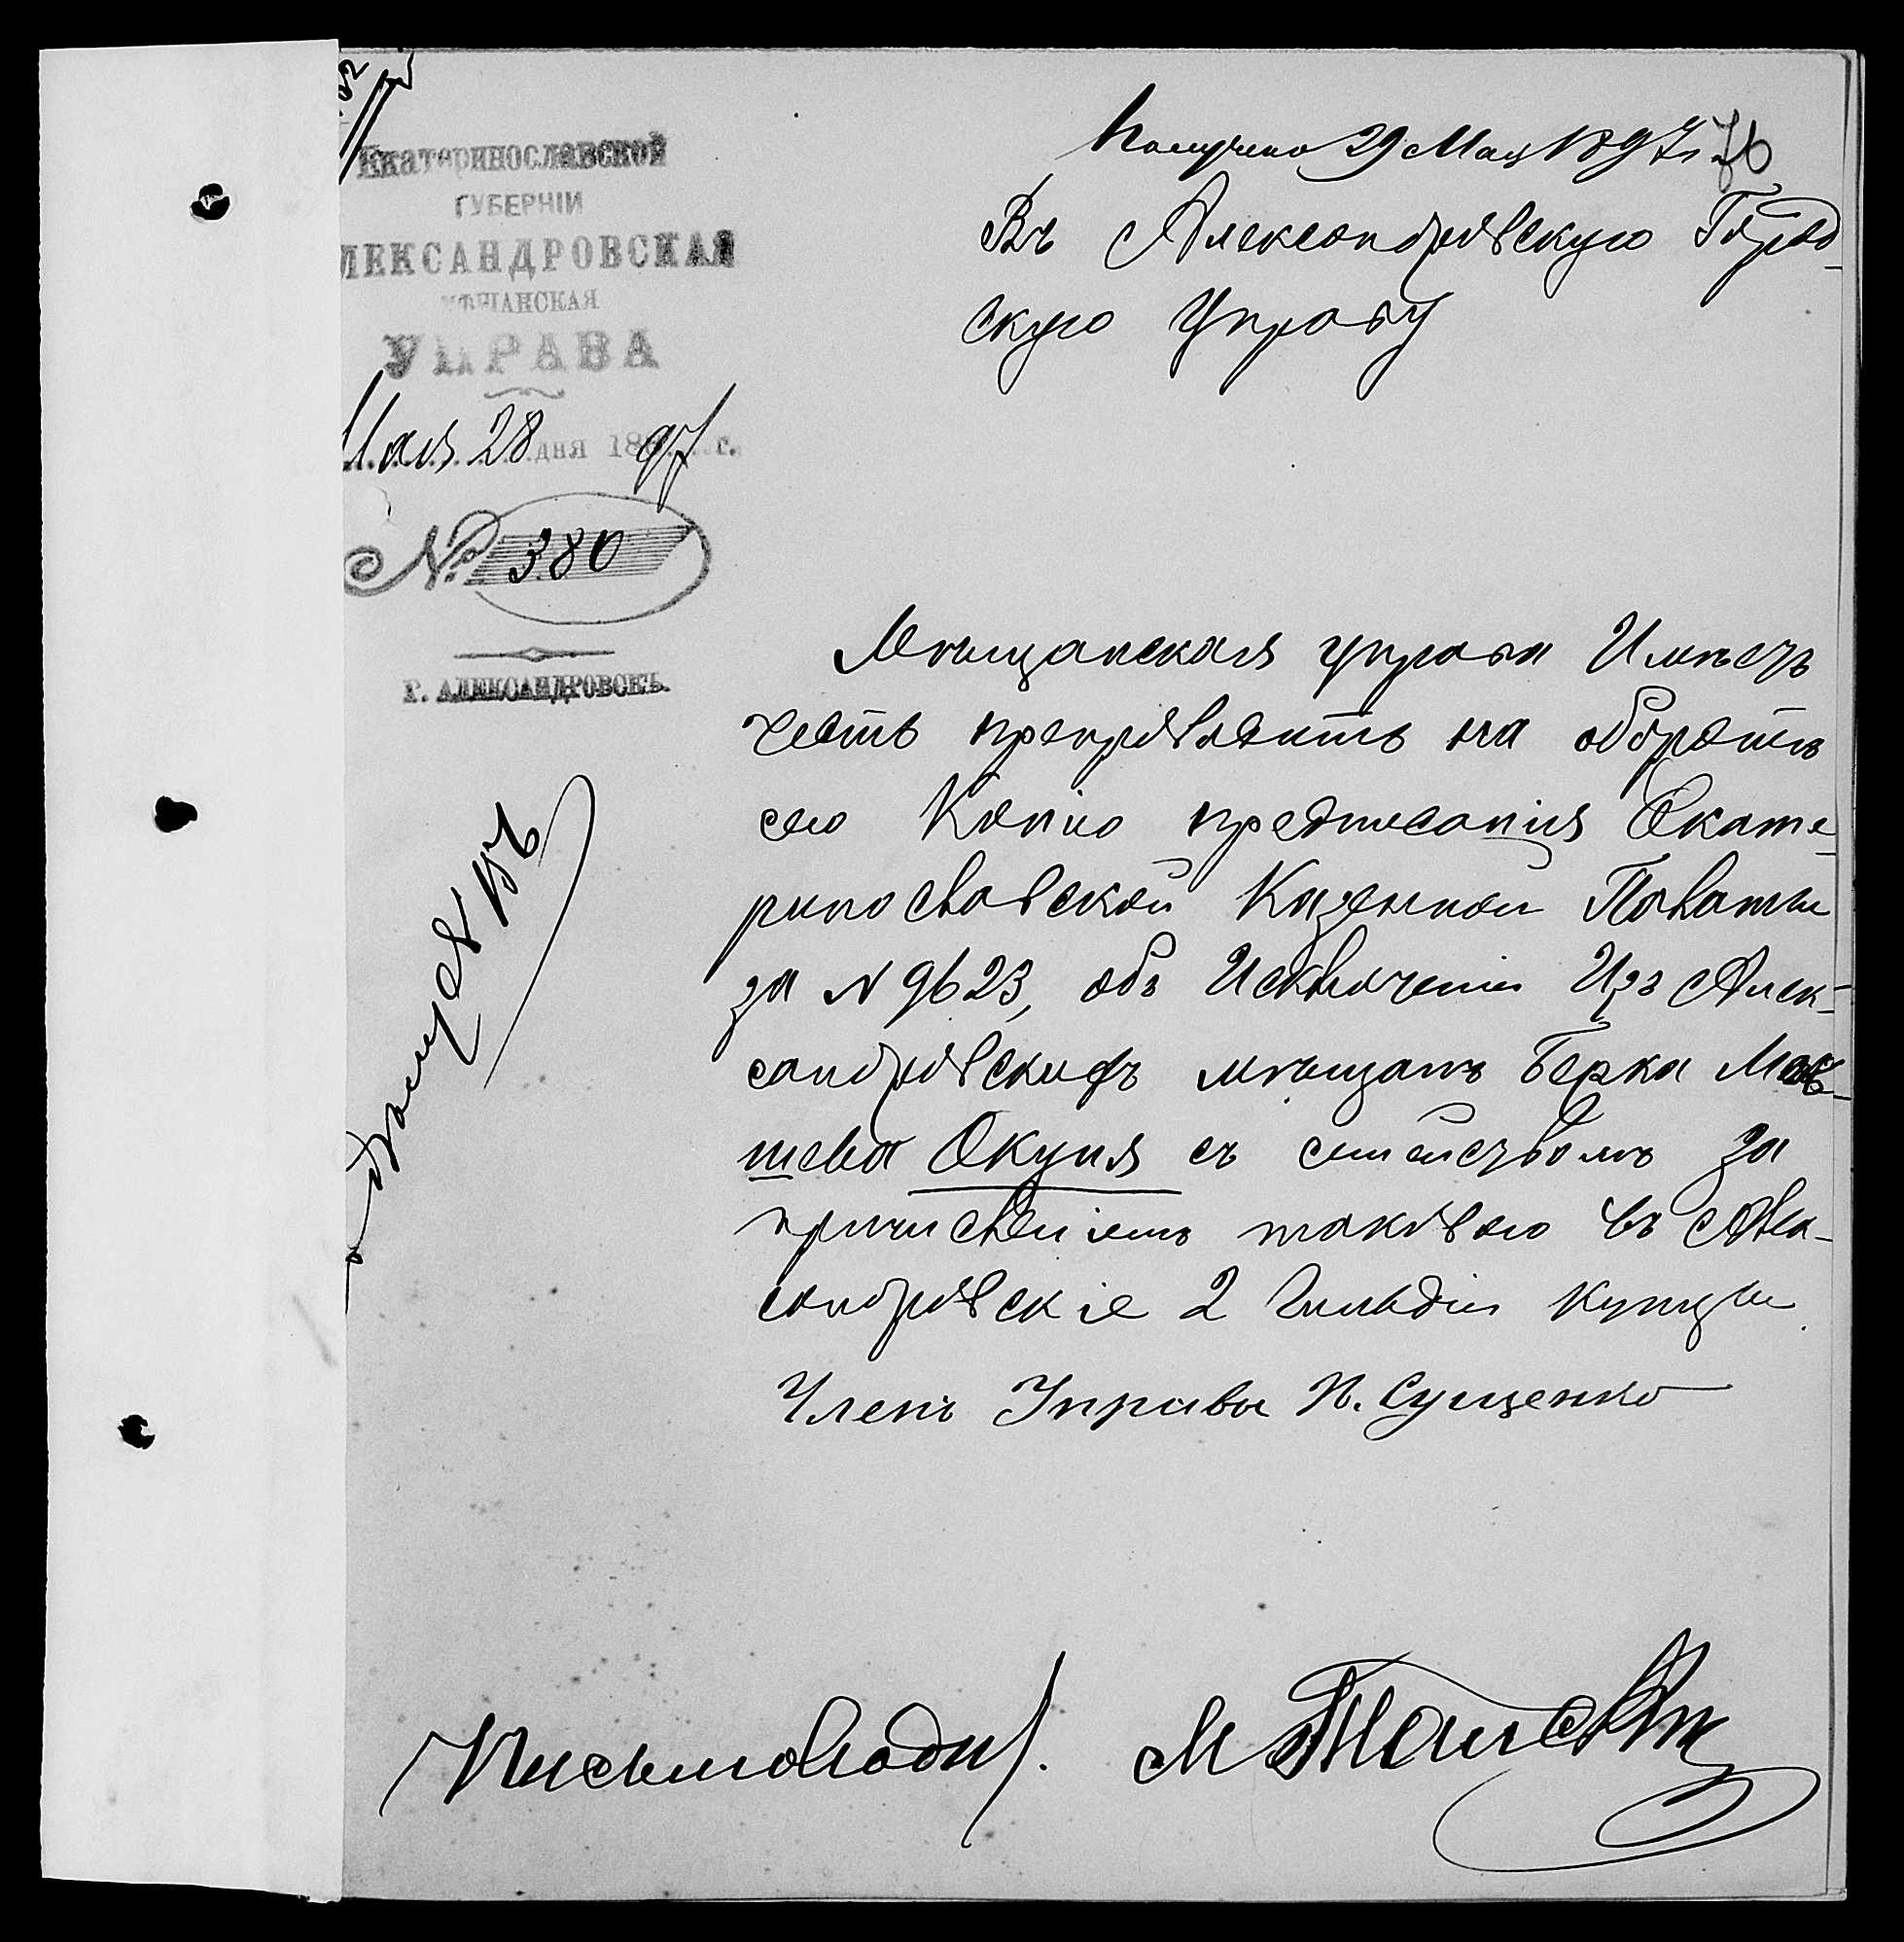 Екатеринославской
ГУБЕРНІИ
ЛЕКСАНДРОВСКАЯ
МѢЩАНСКАЯ
УПРАВА
Мая 28 дня 1897 г.
№ 380
Г. АЛЕКСАНДРОВСКЪ.
Получено 29 Мая 1897 г. 76
Въ Александровскую Город-
скую Управу
Мѣщанская управа Имѣетъ
честь препроводить на оборотѣ
сего Копію предписанія Екате-
ринославской Казенной Палаты
за N 9623, объ Исключеніи Изъ Алек-
сандровскихъ мѣщанъ Берка Мов-
шева Окуня съ семействомъ за
причисленіемъ таковаго въ Алек-
сандровскіе 2 Гильдіи купцы.
Членъ Управы П. Сущенко
Письмоводит. М